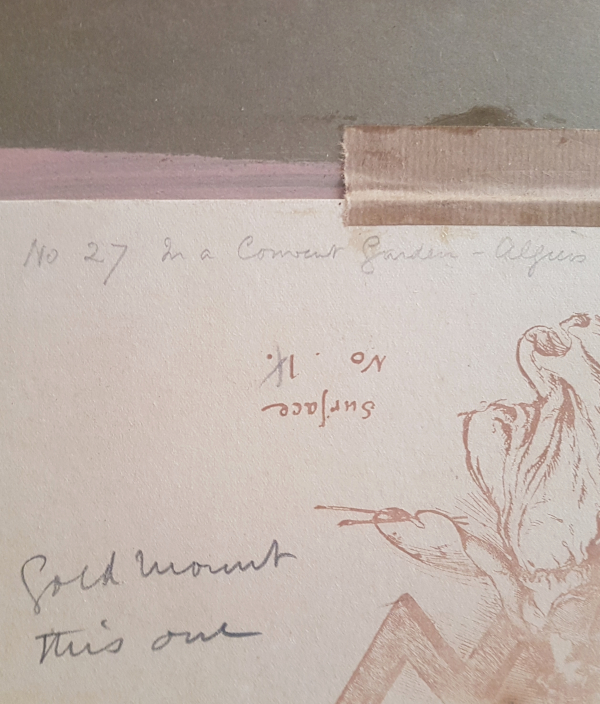 No 27 In a Convent Garden - Algiers
No. 1.
Surface
Gold mount
this one